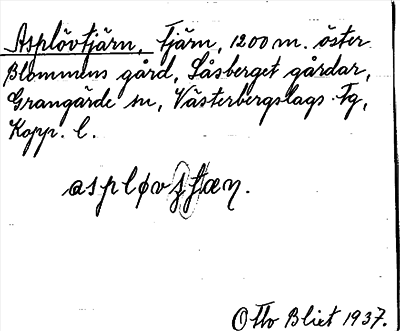 Asplövtjärn, Tjärn, 1200 m. öster
Blommens gård, Låsberget gårdar,
Grangärde sn, Västerbergslags tg,
Kopp. l.
Otto Blixt 1937.